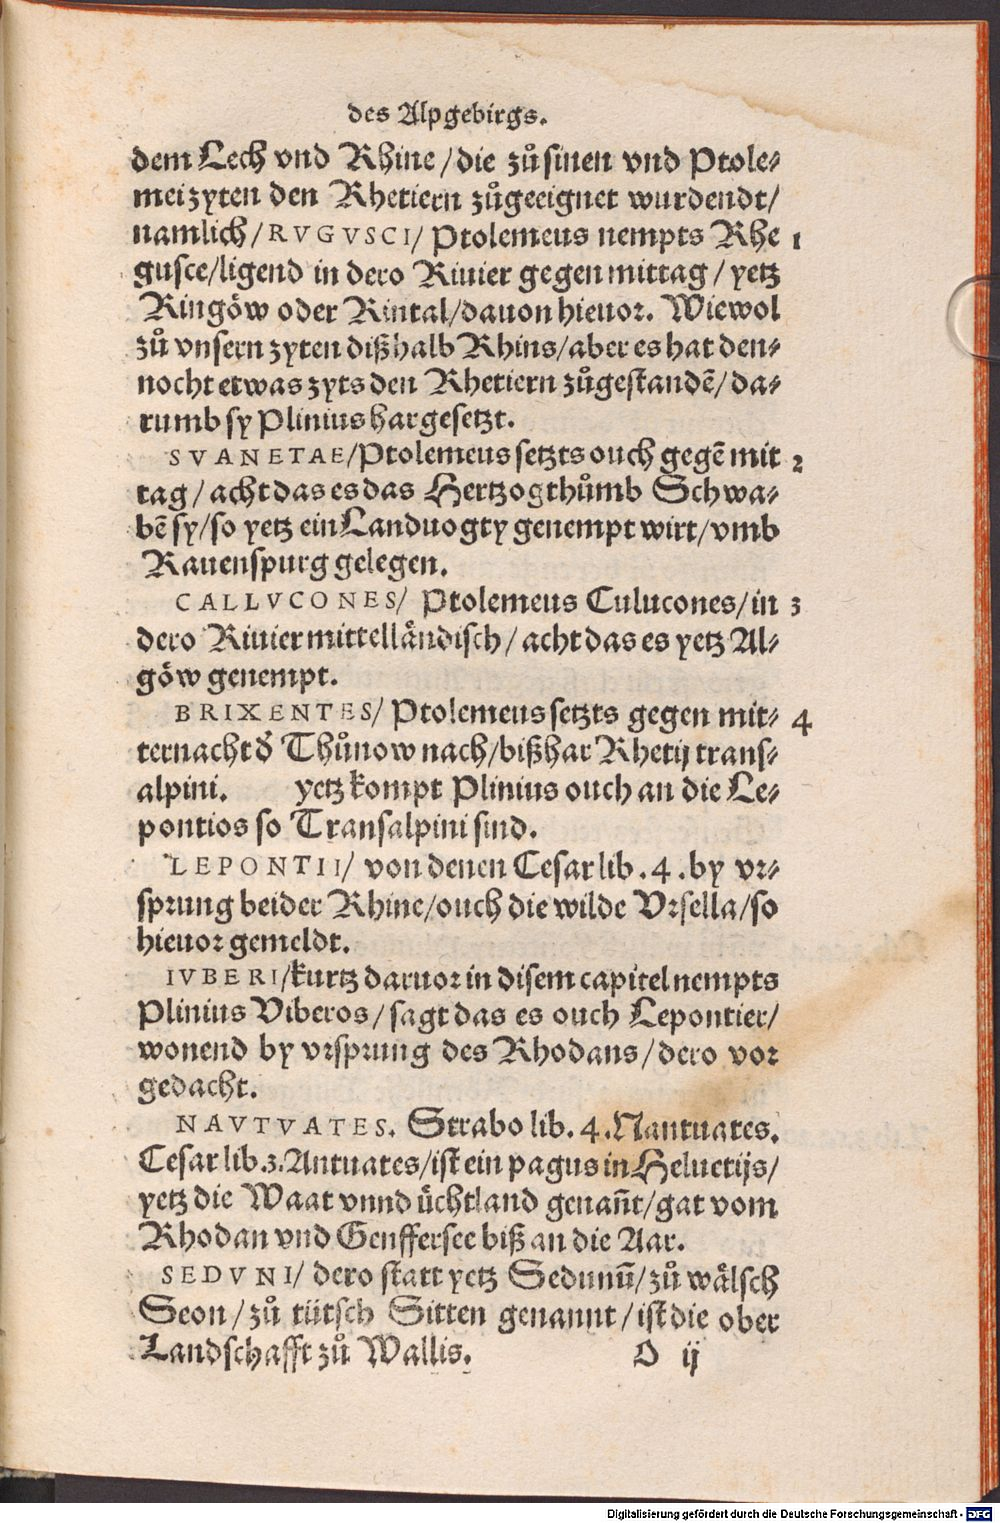 des Alpgebirgs.
dem Lech vnd Rhine/die zů sinen vnd Ptole-
mei zyten den Rhetiern zůgeeignet wurdendt/
namlich/RVGVSCI/ Ptolemeus nempts Rhe 1
gusce/ligend in dero Riuier gegen mittag/ yetz
Ringöw oder Rintal/dauon hieuor. Wiewol
zů vnsern zyten dißhalb Rhins/aber es hat den-
nocht etwas zyts den Rhetiern zůgestandē/da-
rumb sy Plinius har gesetzt.
SVANETAE/Ptolemeus setzts ouch gegē mit 2
tag/ acht das es das Hertzogthůmb Schwa-
bē sy/so yetz ein Landuogty genempt wirt/vmb
Rauenspurg gelegen.
CALLVCONES/ Ptolemeus Culucones/in 3
dero Riuier mittelländisch/ acht das es yetz Al-
göw genempt.
BRIXENTES/ Ptolemeus setzts gegen mit- 4
ternacht d' Thůnow nach/bißhar Rhetij trans-
alpini. yetz kompt Plinius ouch an die Le-
pontios so Transalpini sind.
LEPONTII/ von denen Cesar lib.4.by vr-
sprung beider Rhine/ouch die wilde Vrsella/so
hieuor gemeldt.
IVBERI/kurtz daruor in disem capitel nempts
Plinius Viberos/sagt das es ouch Lepontier/
wonend by vrsprung des Rhodans/dero vor
gedacht.
NAVTVATES. Strabo lib. 4. Nantuates.
Cesar lib.3.Antuates/ist ein pagus in Heluetijs/
yetz die Waat vnnd üchtland genañt/gat vom
Rhodan vnd Genffersee biß an die Aar.
SEDVNI/ dero statt yetz Sedunū/zů wälsch
Seon/zů tütsch Sitten genannt/ist die ober
Landschafft zů Wallis. O ij
Digitalisierung gefördert durch die Deutsche Forschungsgemeinschaft - DFG